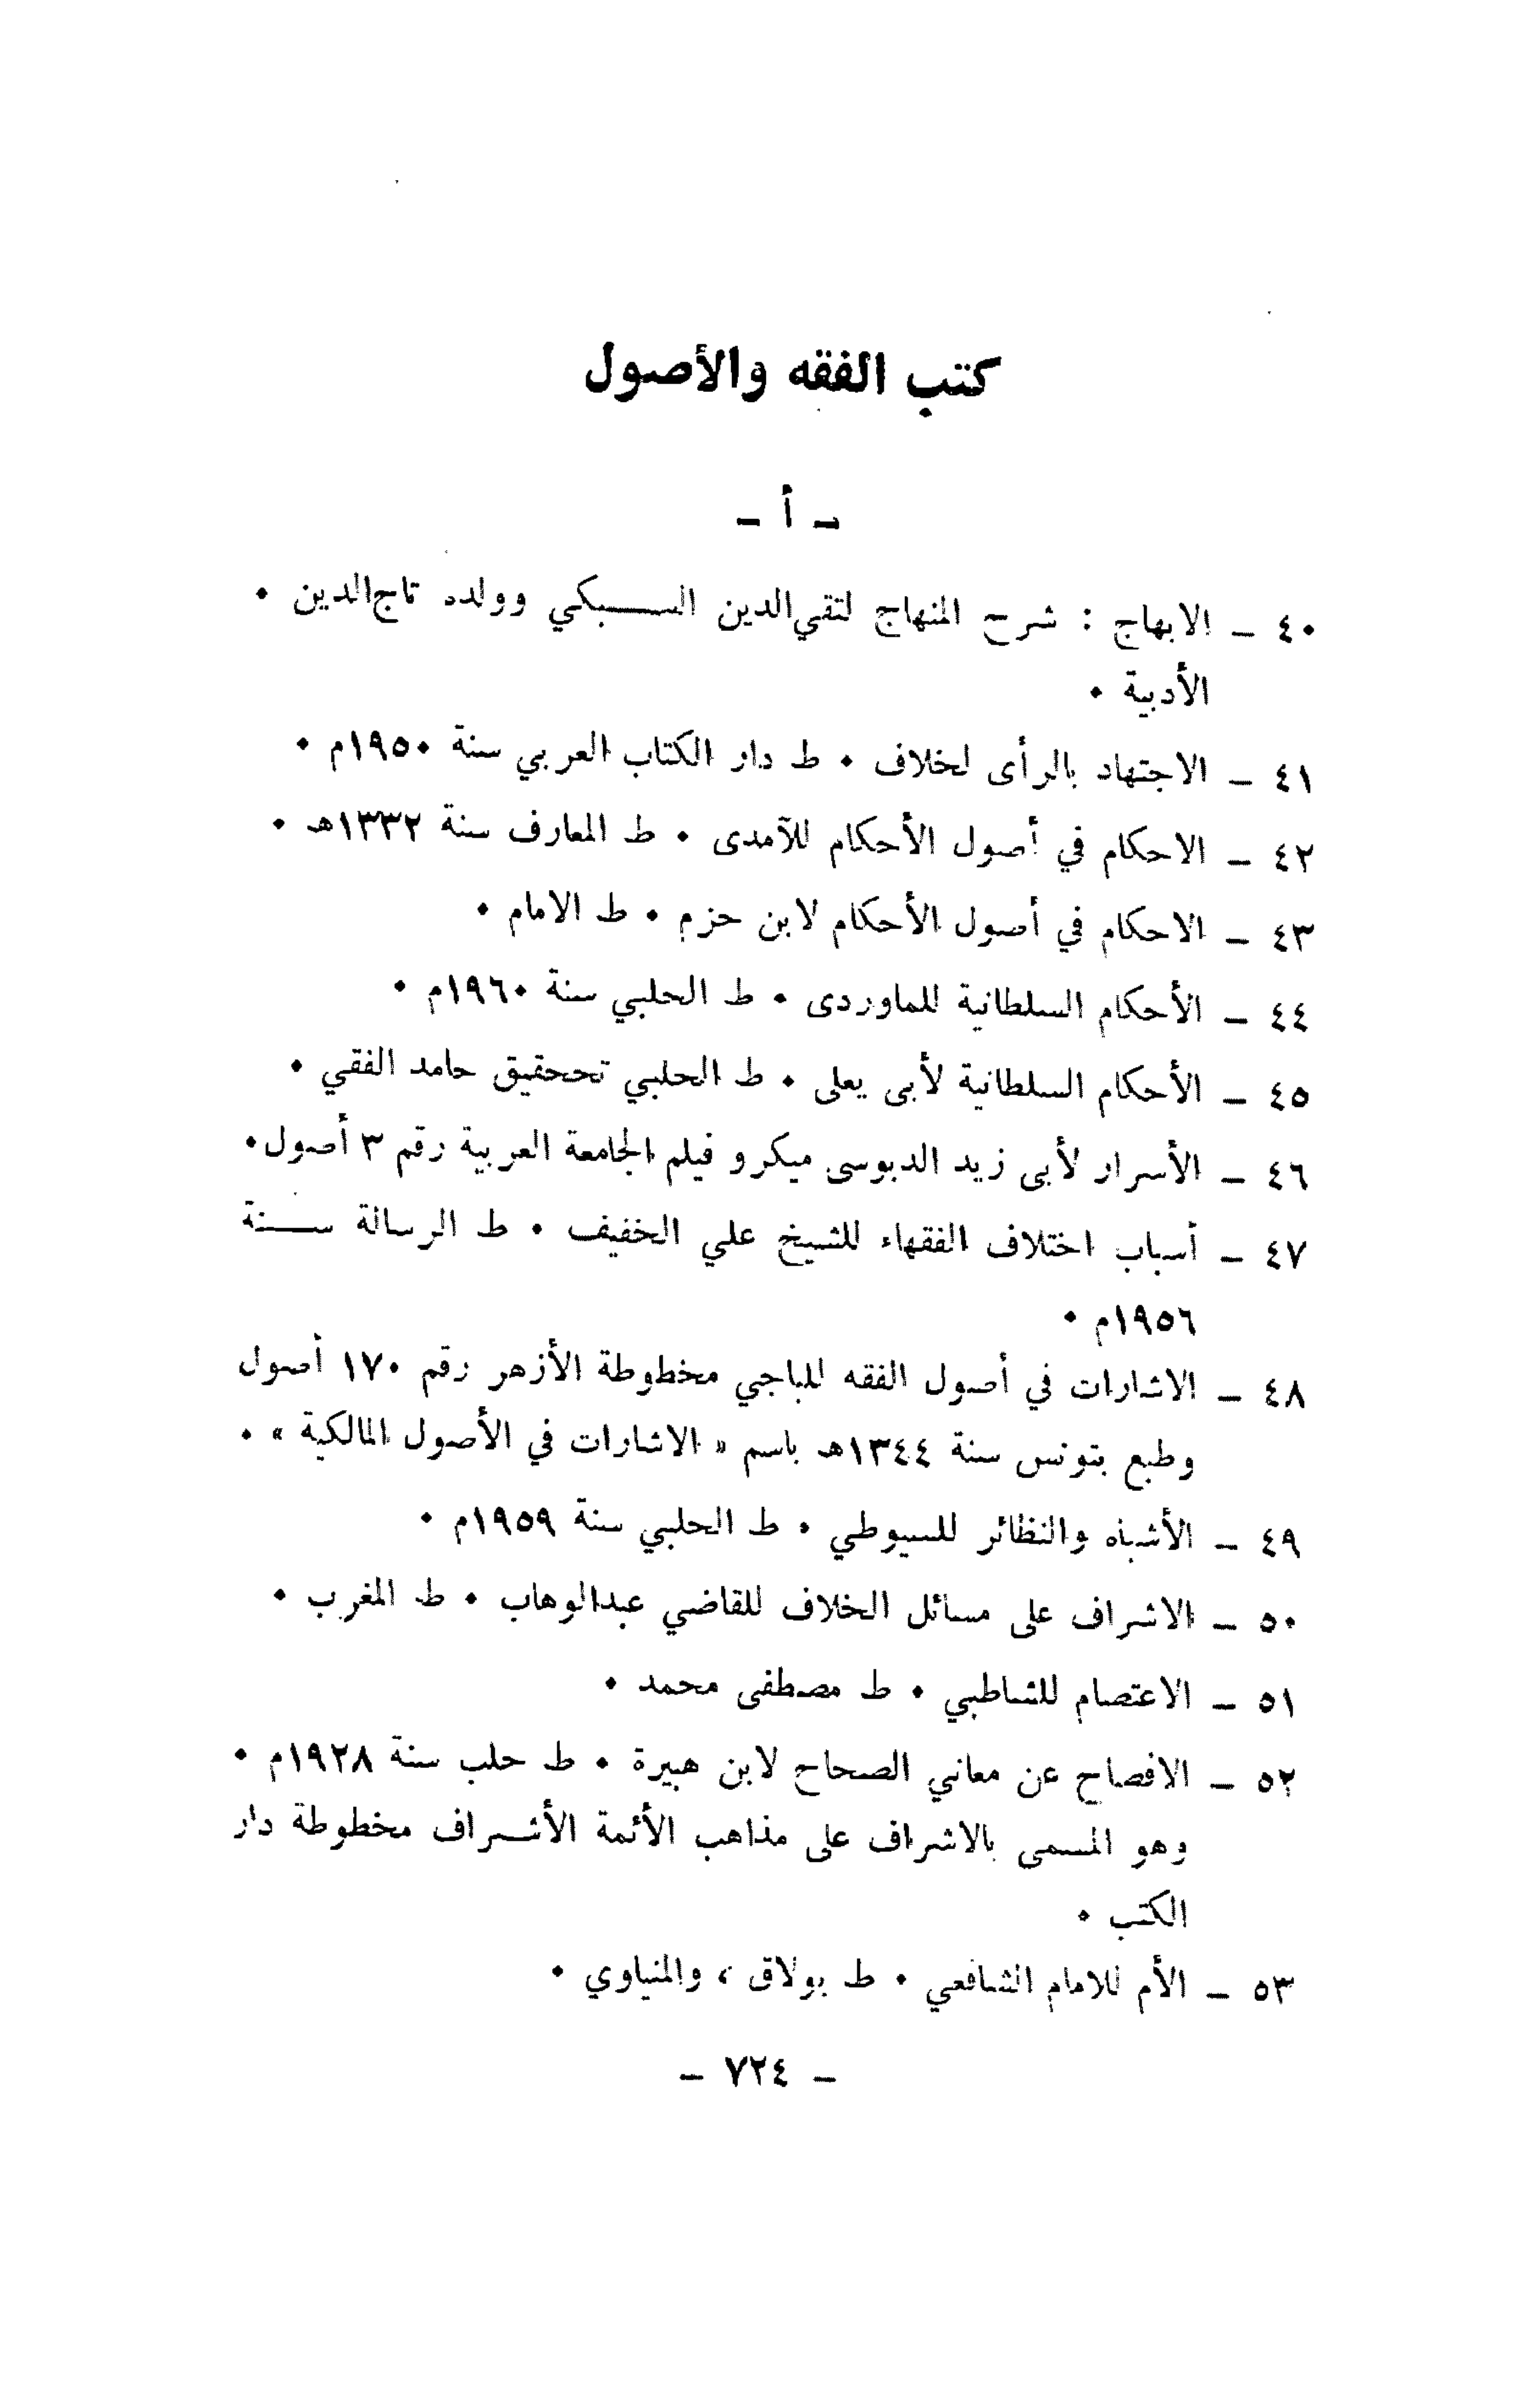 كتب الفقه والأصول
ـ أ ـ
٤٠ ـ الابهاج : شرح المنهاج لتقي الدين السبكي وولده تاج الدين ٠
الأدبية ٠
٤١ ـ الاجتهاد بالرأى لخلاف ٠ ط دار الكتاب العربي سنة ١٩٥٠م ٠
٤٢ ـ الاحكام في أصول الأحكام للآمدى ٠ ط المعارف سنة ١٣٣٢هـ ٠
٤٣ ـ الاحكام في أصول الأحكام لابن حزم ٠ ط الامام ٠
٤٤ ـ الأحكام السلطانية للماوردى ٠ ط الحلبي سنة ١٩٦٠م ٠
٤٥ ـ الأحكام السلطانية لأبى يعلى ٠ ط الحلبي تحقيق حامد الفقي ٠
٤٦ ـ الأسرار لأبى زيد الدبوسى ميكرو فيلم الجامعة العربية رقم ٣ أصول٠
٤٧ ـ أسباب اختلاف الفقهاء للشيخ علي الخفيف ٠ ط الرسالة سنة
١٩٥٦م ٠
٤٨ ـ الاشارات في أصول الفقه للباجي مخطوطة الأزهر رقم ١٧٠ أصول
وطبع بتونس سنة ١٣٤٤هـ باسم « الاشارات في الأصول المالكية » ٠
٤٩ ـ الأشباه والنظائر للسيوطي ٠ ط الحلبي سنة ١٩٥٩م ٠
٥٠ ـ الاشراف على مسائل الخلاف للقاضي عبدالوهاب ٠ ط المغرب ٠
٥١ ـ الاعتصام للشاطبي ٠ ط مصطفى محمد ٠
٥٢ ـ الافصاح عن معاني الصحاح لابن هبيرة ٠ ط حلب سنة ١٩٢٨م ٠
وهو المسمى بالاشراف على مذاهب الأئمة الأشراف مخطوطة دار
الكتب ٠
٥٣ ـ الأم للامام الشافعي ٠ ط بولاق ، والمنياوي ٠
ـ ٧٢٤ ـ